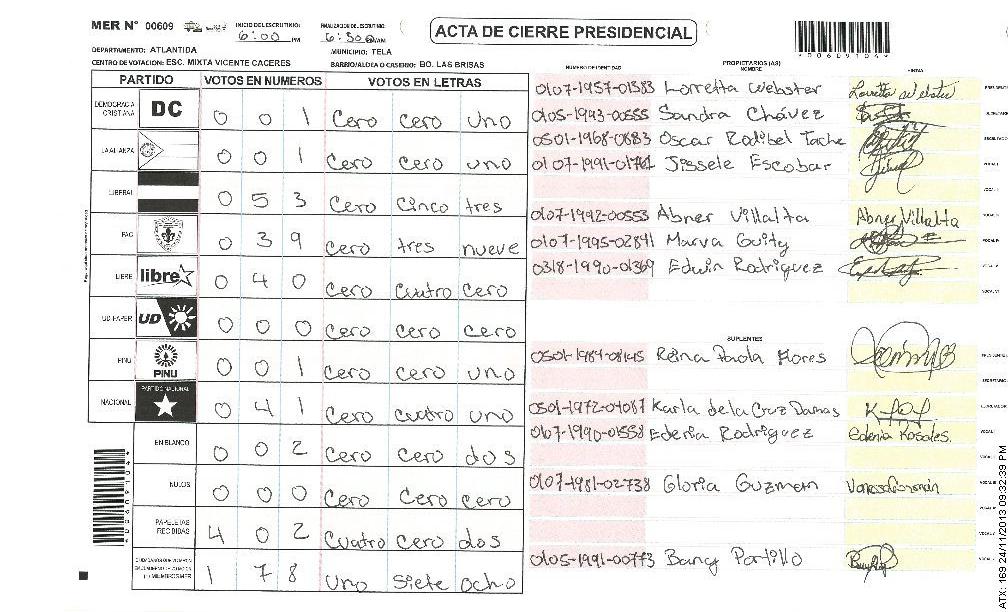 MER N° 00609
INICIO DEL ESCRUTINIO:
6:00 PM
FINALIZACION DEL ESCRUTINIO:
ACTA DE CIERRE PRESIDENCIAL
*00609104*
DEPARTAMENTO: ATLANTIDA
MUNICIPIO: TELA
CENTRO DE VOTACION: ESC. MIXTA VICENTE CACERES
BARRIO/ALDEA O CASERIO: BO. LAS BRISAS
PARTIDO VOTOS EN NUMEROS VOTOS EN LETRAS
DEMOCRACIA CRISTIANA DC 0 0 1 Cero cero uno
LA ALIANZA 0 0 1 Cero cero uno
LIBERAL 0 5 3 Cero cinco tres
PAC 0 3 9 Cero tres nueve
LIBRE libre 0 4 0 Cero cuatro cero
UD-FAPER UD 0 0 0 Cero cero cero
PINU PINU 0 0 1 Cero cero uno
NACIONAL PARTIDO NACIONAL 0 4 1 Cero cuatro uno
EN BLANCO 0 0 2 Cero cero dos
NULOS 0 0 0 Cero Cero cero
PAPELETAS RECIBIDAS 4 0 2 Cuatro cero dos
1 7 8 uno siete ocho
NUMERO DE IDENTIDAD
PROPIETARIOS (AS)
NOMBRE
FIRMA
0107-1957-01383 Lorretta Webster
0105-1993-00555 Sandra Chávez
0501-1968-0683 Oscar Rodibel Tache
0107-1991-01761 Jissele Escobar
0107-1992-00553 Abner Villalta Abner Villalta
0107-1995-02841 Marva Guity
0318-1990-01369 Edwin Rodriguez
SUPLENTES
0501-1984-08145 Reina Paola Flores
0501-1972-04087 Karla de la Cruz Damas
0107-1990-01558 Edenia Rodriguez Edenia Rosales.
0107-1981-02738 Gloria Guzman
0105-1991-00773 Bancy Portillo
ATX: 169 24/11/2013 09:32:39 PM